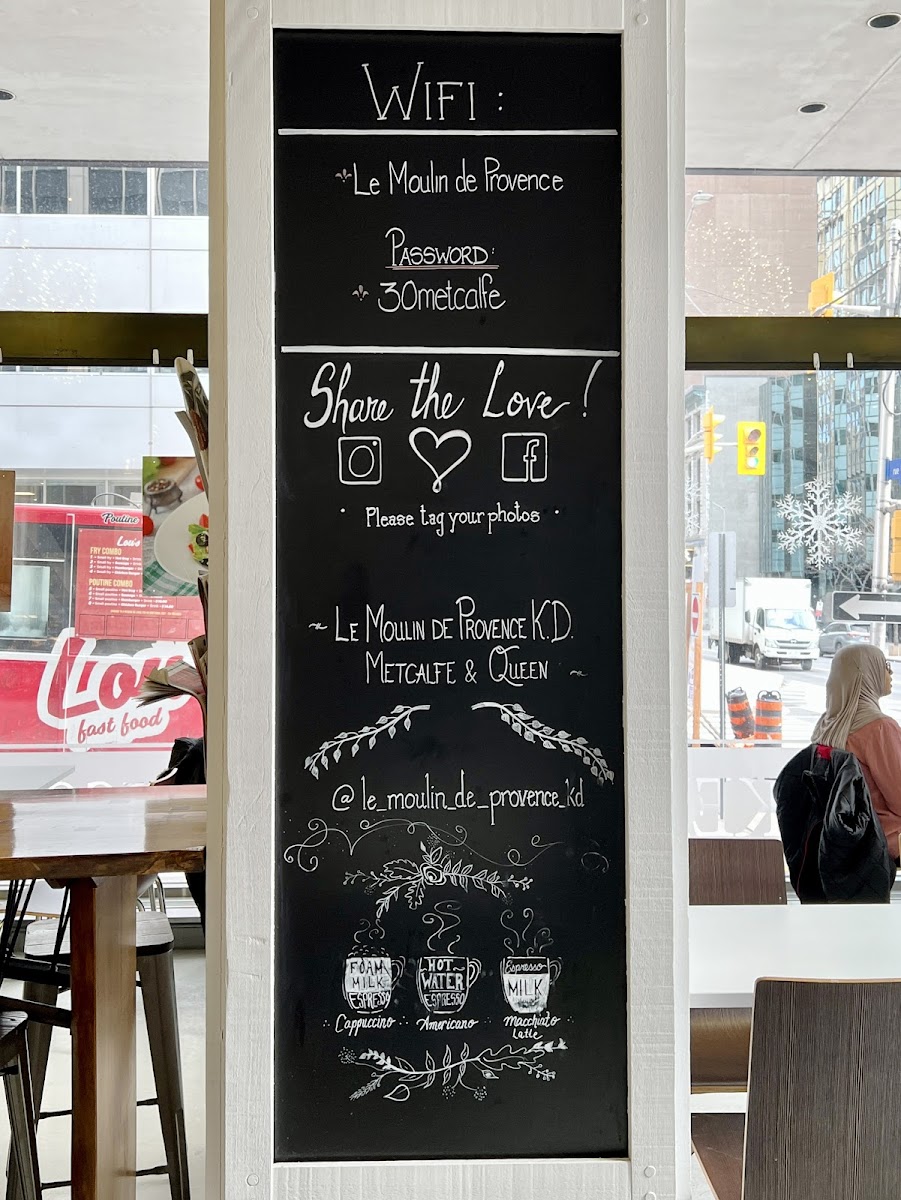 WIFI :
Le Moulin de Provence
PASSWORD:
30metcalfe
Share the Love!
f
Please tag your photos
~ LE MOULIN DE PROVENCE K.D.
METCALFE & QUEEN ~
@le_moulin_de_provence_kd
FOAM
MILK
ESPRESSO
Cappuccino
HOT
WATER
ESPRESSO
Americano
Espresso
MILK
Macchiato
Latte
Poutine
Lou's
FRY COMBO
POUTINE COMBO
Lou
fast food